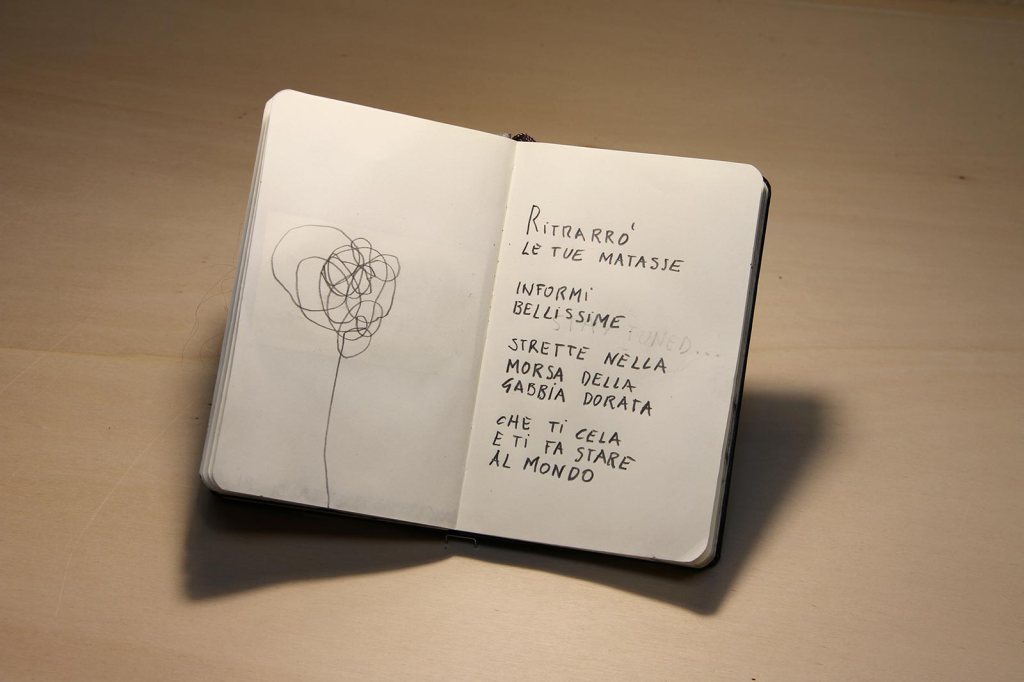 RiTRARRO'
LE TUE MATASSE
INFORMi
BELLiSSiME
STAY TUNED...
STRETTE NELLA
MORSA DELLA
GABBiA DORATA
CHE Ti CELA
E Ti FA STARE
AL MONDO